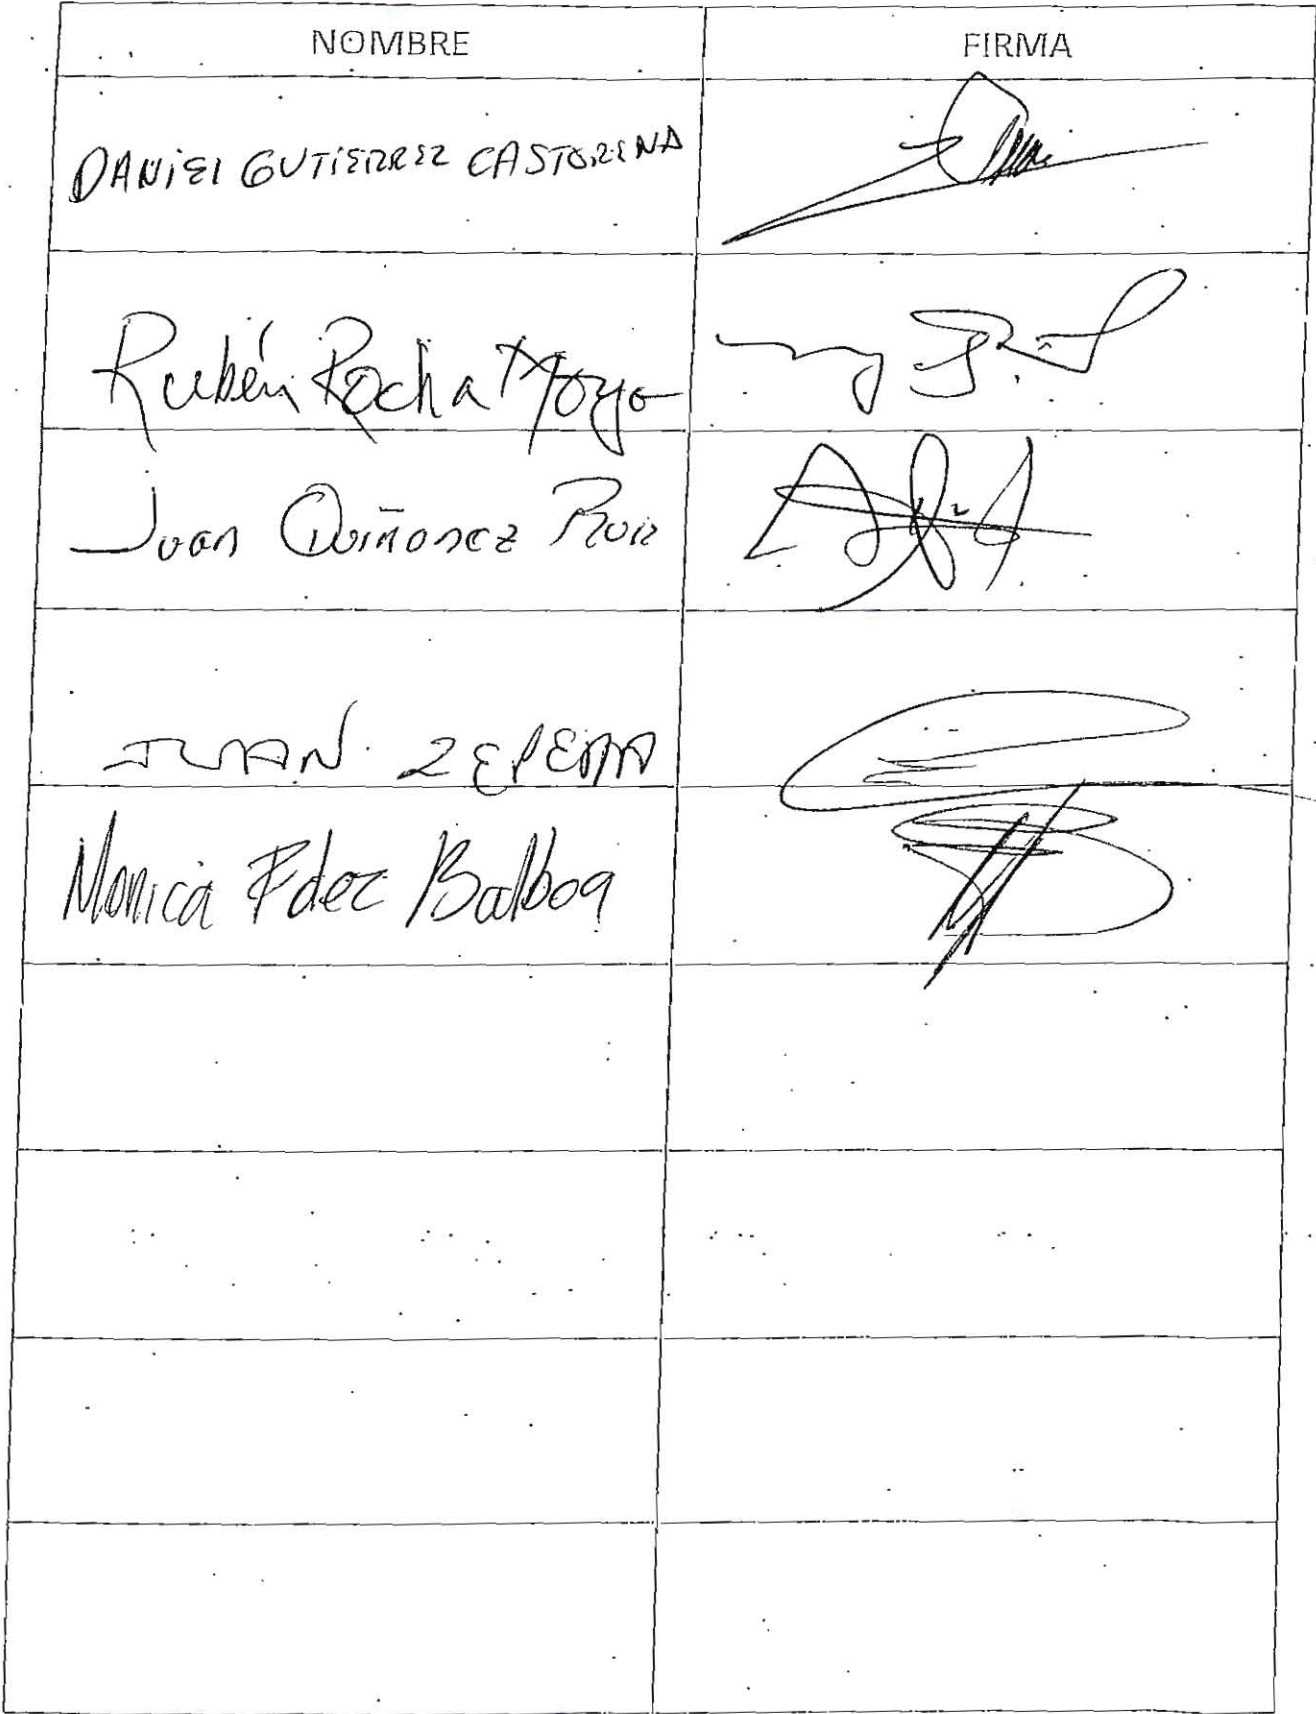 NOMBRE FIRMA
DANIEL GUTIERREZ CASTORENA
Rubén Rocha Moyo
Juan Quiñonez Ruiz
JUAN ZEPEDA
Monica Fdez Balboa